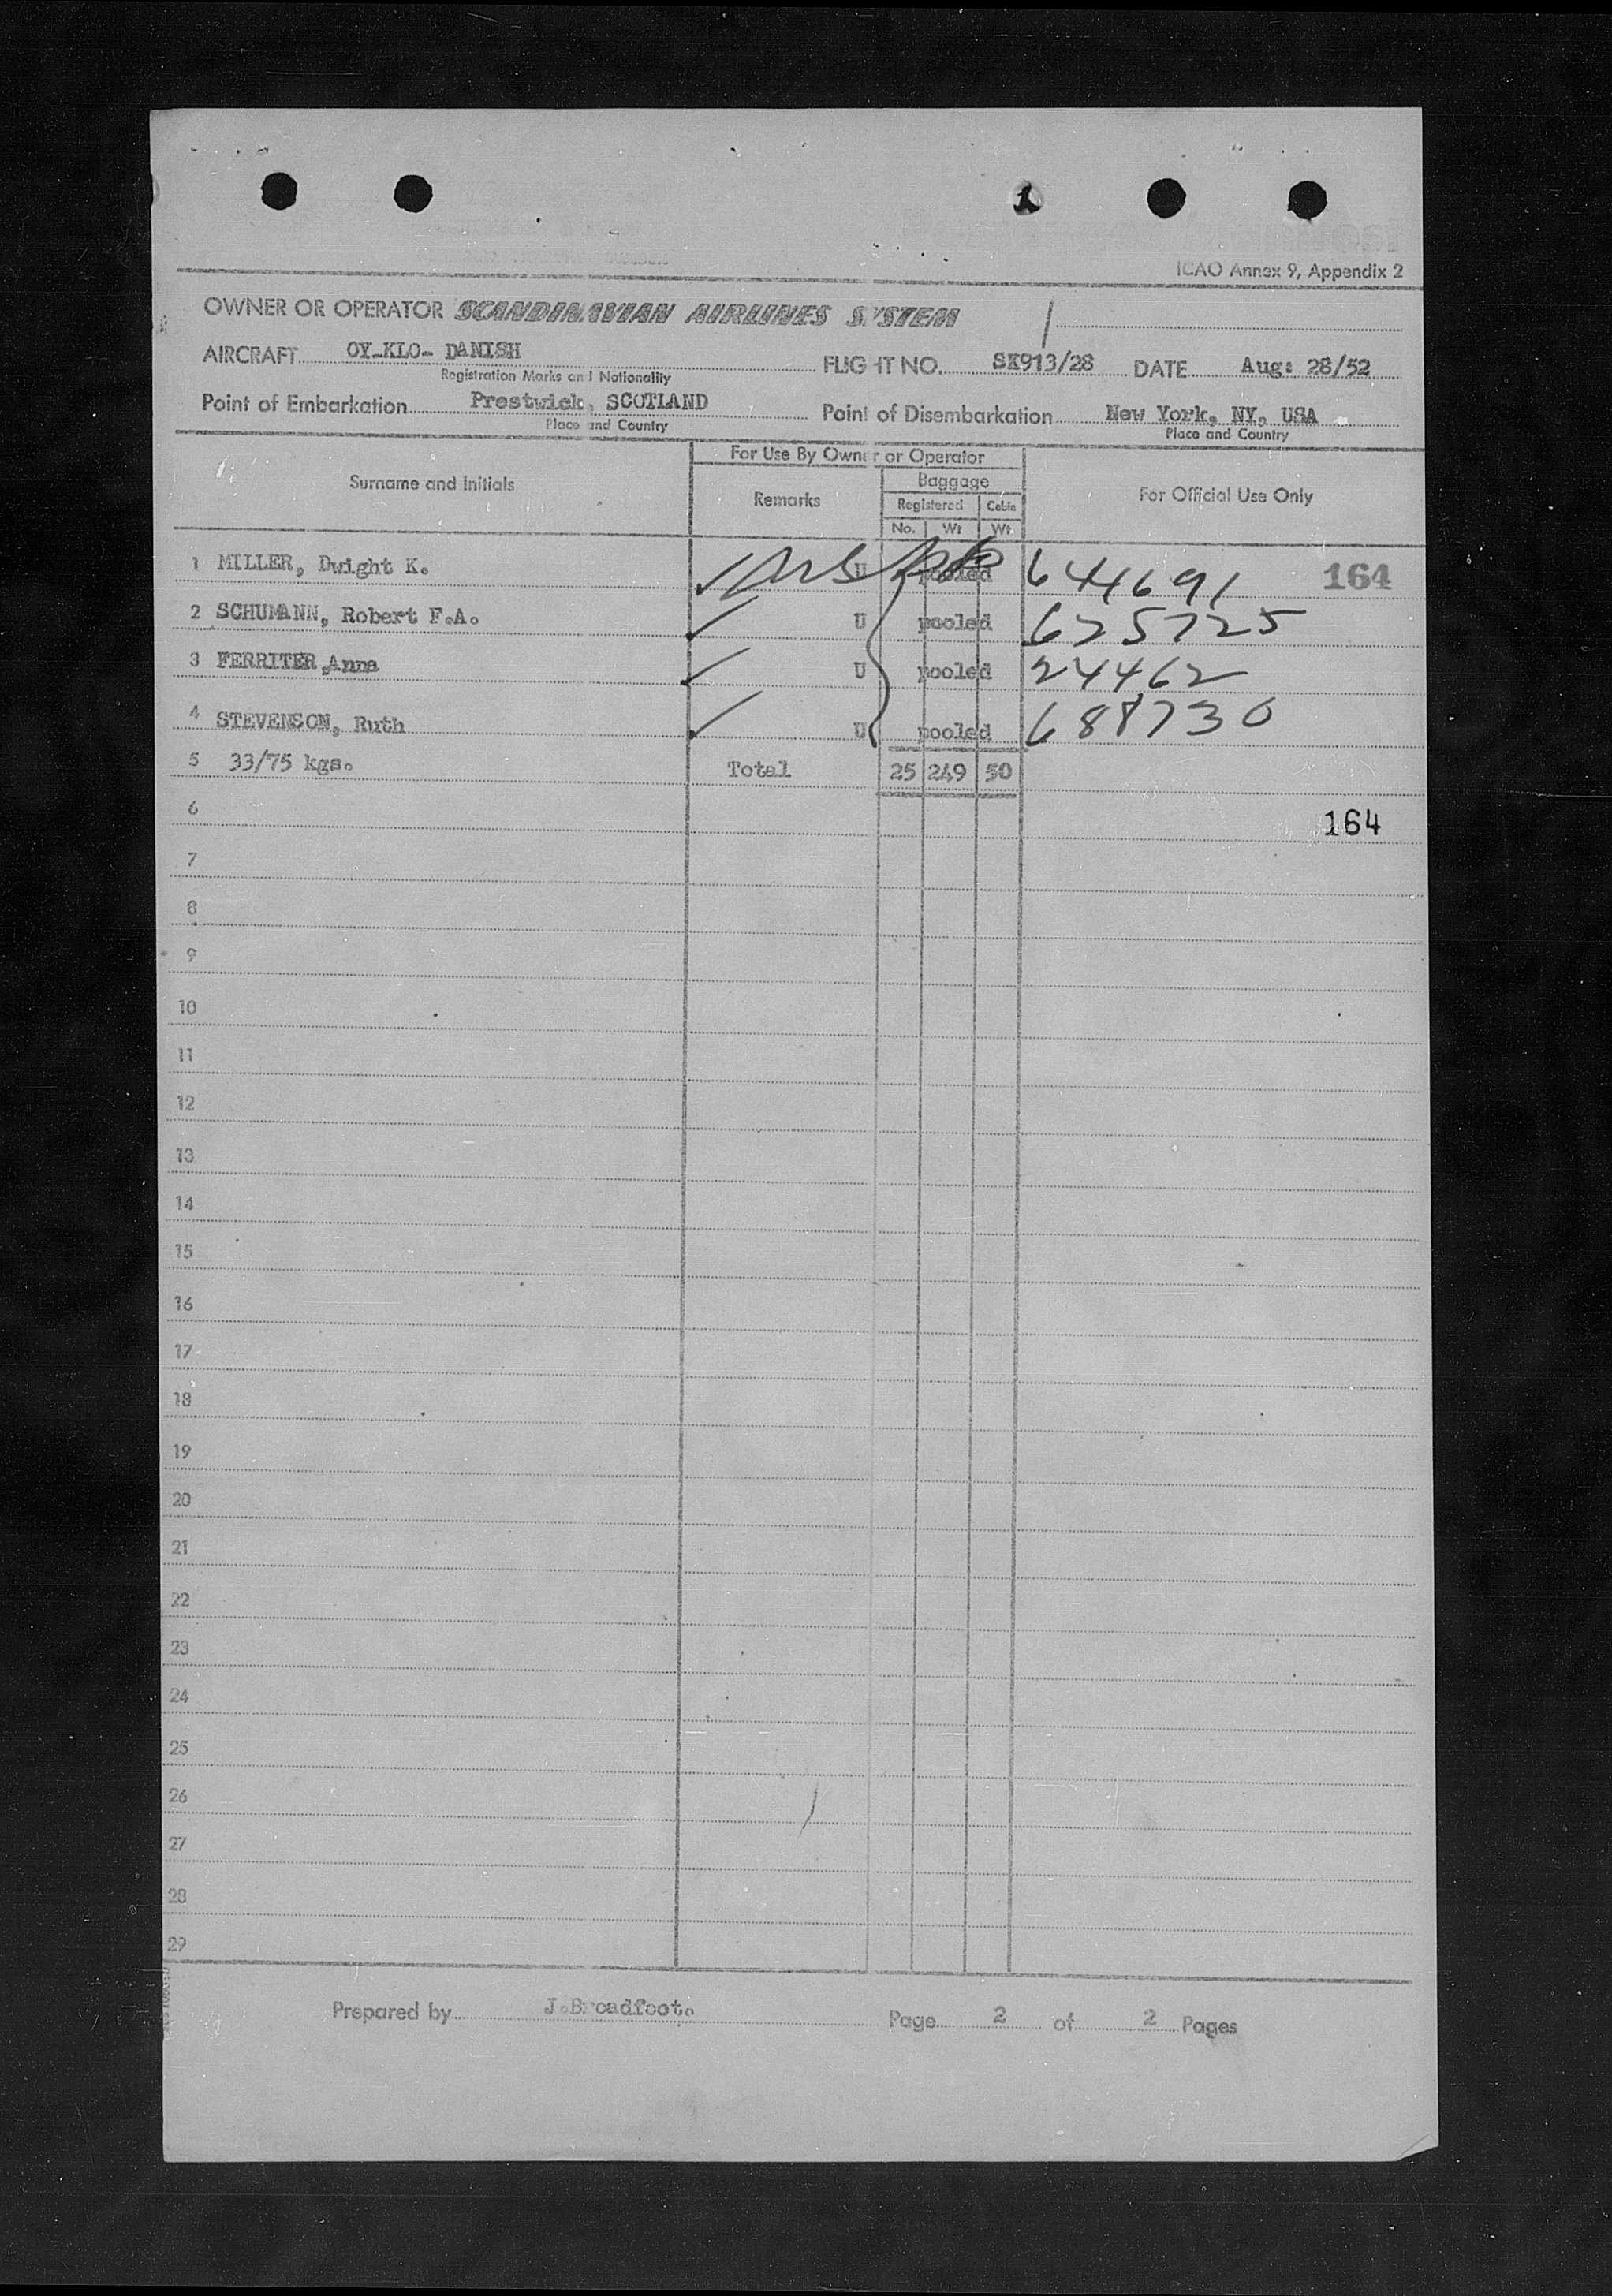 ICAO Annex 9, Appendix 2
OWNER OR OPERATOR SCANDINAVIAN AIRLINES SYSTEM
AIRCRAFT OY-KLO- DANISH FLIGHT NO. SK913/28 DATE Aug: 28/52
Registration Marks and Nationality
Point of Embarkation Prestwick, SCOTLAND Point of Disembarkation New York, NY, USA
Place and Country Place and Country
For Use By Owner or Operator
Surname and Initials Remarks Baggage For Official Use Only
Registered Cabin
No. Wt Wt
1 MILLER, Dwight K. U pooled 644691 164
2 SCHUMANN, Robert F.A. U pooled 625725
3 FERRITER,Anna U pooled 24462
4 STEVENSON, Ruth U pooled 688730
5 33/75 kgs. Total 25 249 50
6 164
7
8
9
10
11
12
13
14
15
16
17
18
19
20
21
22
23
24
25
26
27
28
29
Prepared by J.Broadfoot. Page 2 of 2 Pages